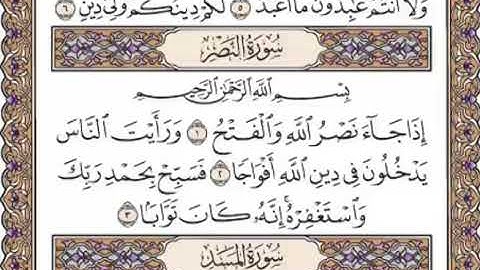 وَلَآ أَنتُمْ عَٰبِدُونَ مَآ أَعْبُدُ ٥ لَكُمْ دِينُكُمْ وَلِىَ دِينِ ٦
سُورَةُ النَّصْرِ
بِسْمِ ٱللَّهِ ٱلرَّحْمَٰنِ ٱلرَّحِيمِ
إِذَا جَآءَ نَصْرُ ٱللَّهِ وَٱلْفَتْحُ ١ وَرَأَيْتَ ٱلنَّاسَ
يَدْخُلُونَ فِى دِينِ ٱللَّهِ أَفْوَاجًا ٢ فَسَبِّحْ بِحَمْدِ رَبِّكَ
وَٱسْتَغْفِرْهُ ۚ إِنَّهُۥ كَانَ تَوَّابًۢا ٣
سُورَةُ المَسَدِ